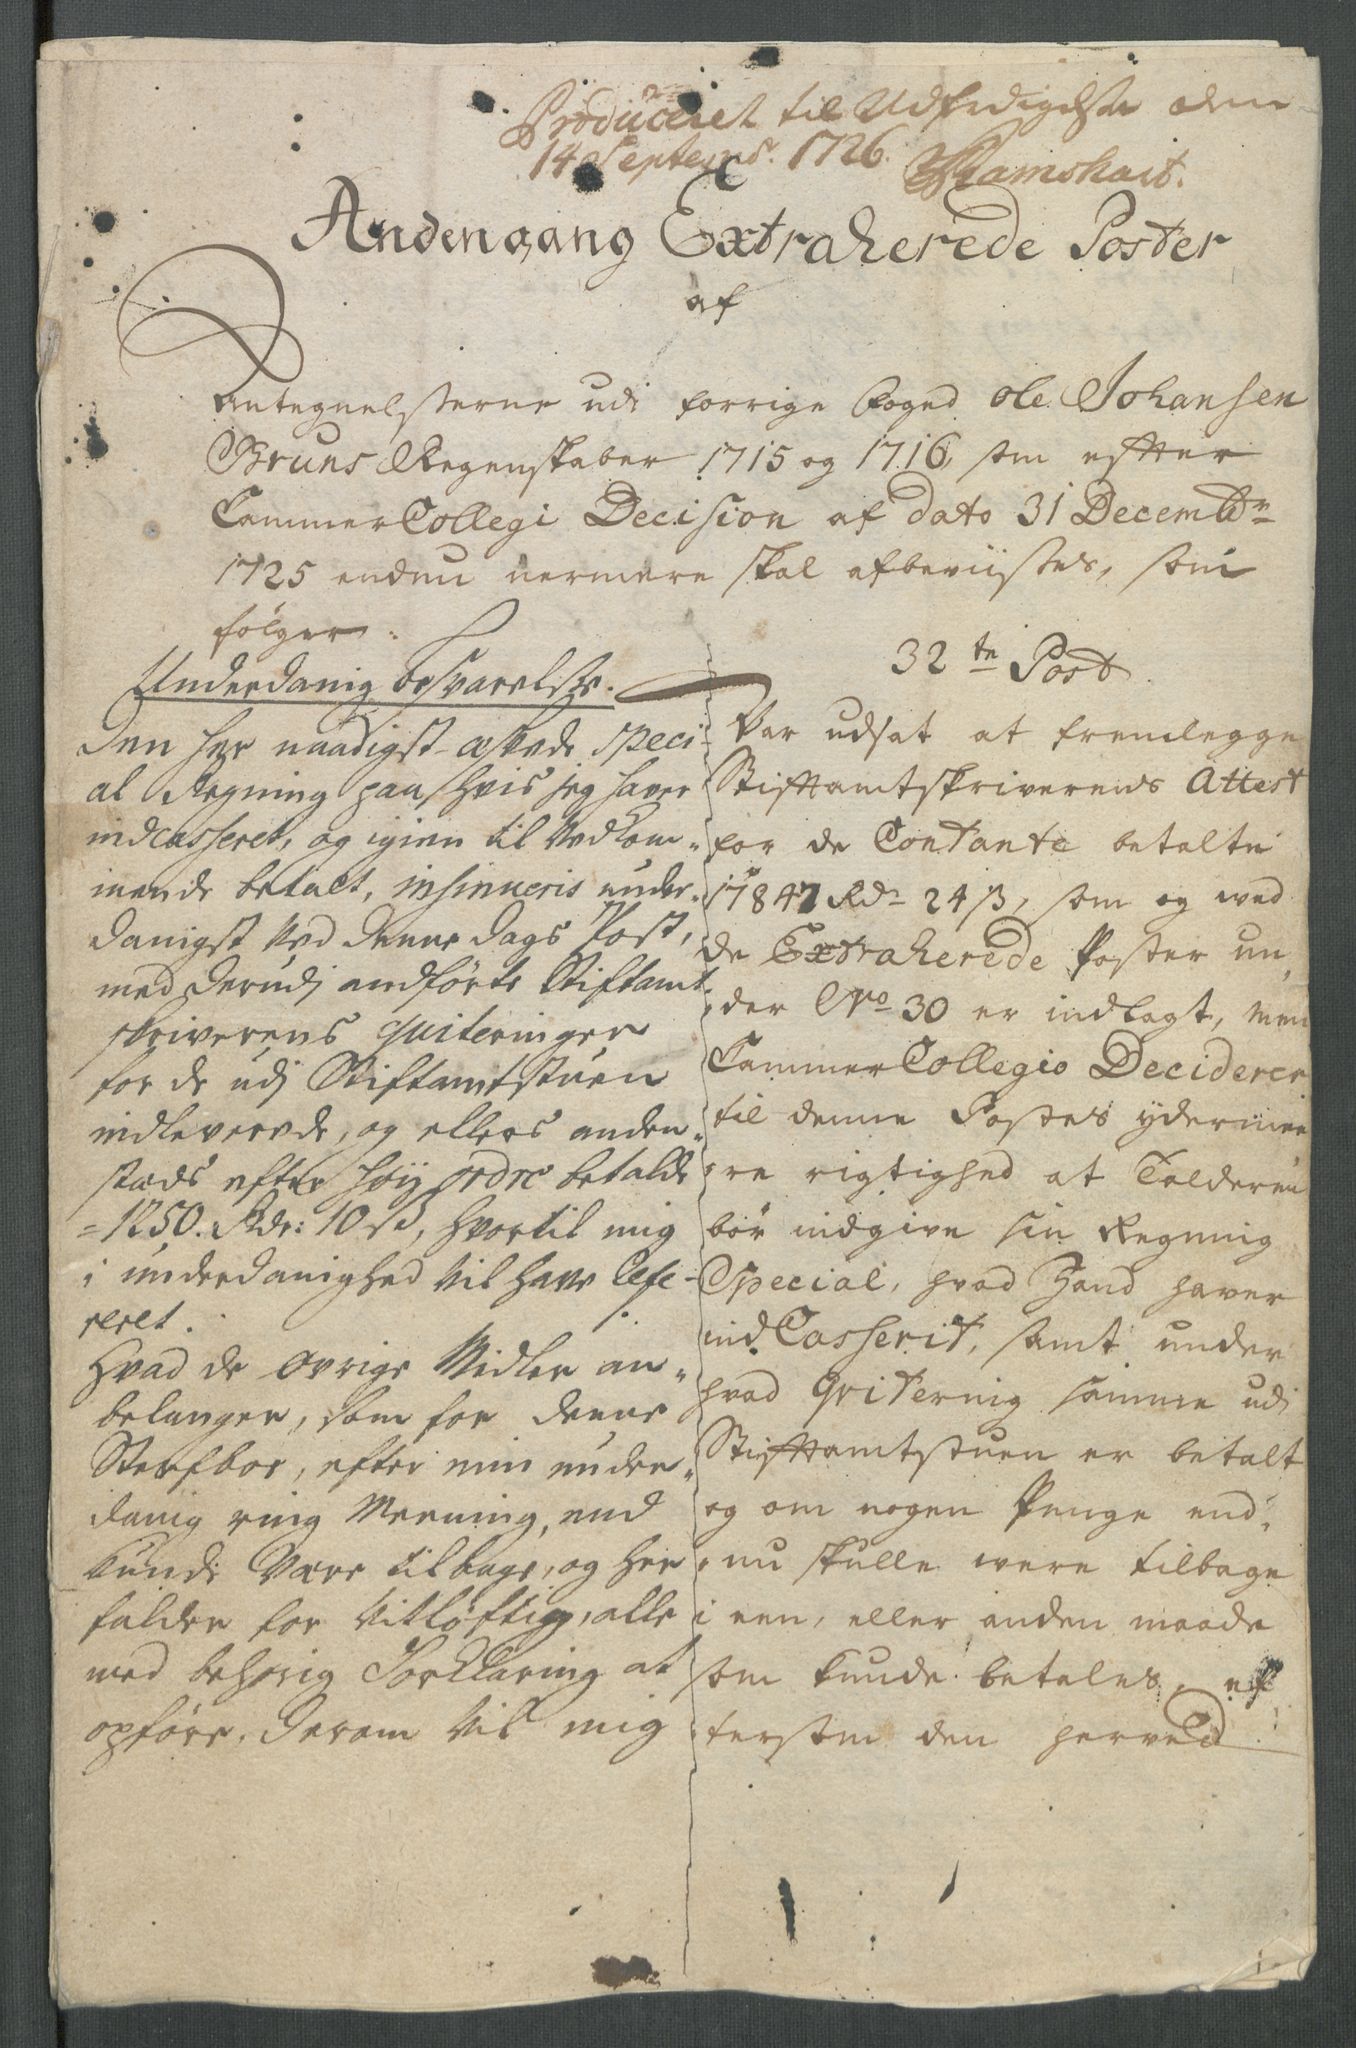 Produceret til Udferdigelse den
14 Septembr. 1726. Ramshart.
Andengang Extraherede Poster
af
Antegnelsterne udi forrige Foged Ole Johansen
Bruns Regenskaber 1715 og 1716, som efter
CammerCollegi Decision af dato 31 Decembr
1725 endnu nermere skal afbeviistes, som
følger.
Underdanig besvarelse.
Den her naadigst æskede speci-
al Regning paa hvis jeg haver
indcasseret, og igien til Vedkom-
mende betalt, insinueris under-
danigst ved denne dags Post,
med derudj andførte Stiftamt-
skriverens quiteringer
for de udj Stiftamtstuen
indleverede, og ellers anden-
stæds efter høy ordre betalde
=1250. Rdr: 10 ß, hvortil mig
i underdanighed vil have refe-
reret.
Hvad de øvrige Midler an-
belanger, som for denne
Sterfboe, efter min under-
danig ring Meening, end
kunde være tilbage, og her
falder for vitløftig, alle
med behørig Forklaring at
opføre, derom vil mig
32te Post
Var udsat at fremlegge
Stiftamtskriverens Attest
for de Contante betalte
1784 Rdr 24 ß, som og wed
de Extraherede Poster un-
der No 30 er indlagt, men
CammerCollegio Deciderer
til denne Postes ydermee-
re rigtighed at Tolderen
bør indgive sin Regning
Special, hvad Hand haver
indCasserit, samt under
hvad Qvitering samme udi
Stiftamtstuen er betalt
og om nogen Penge end-
nu skulle were tilbage
i een, eller anden maade
som kunde betales, ef
tersom den herved